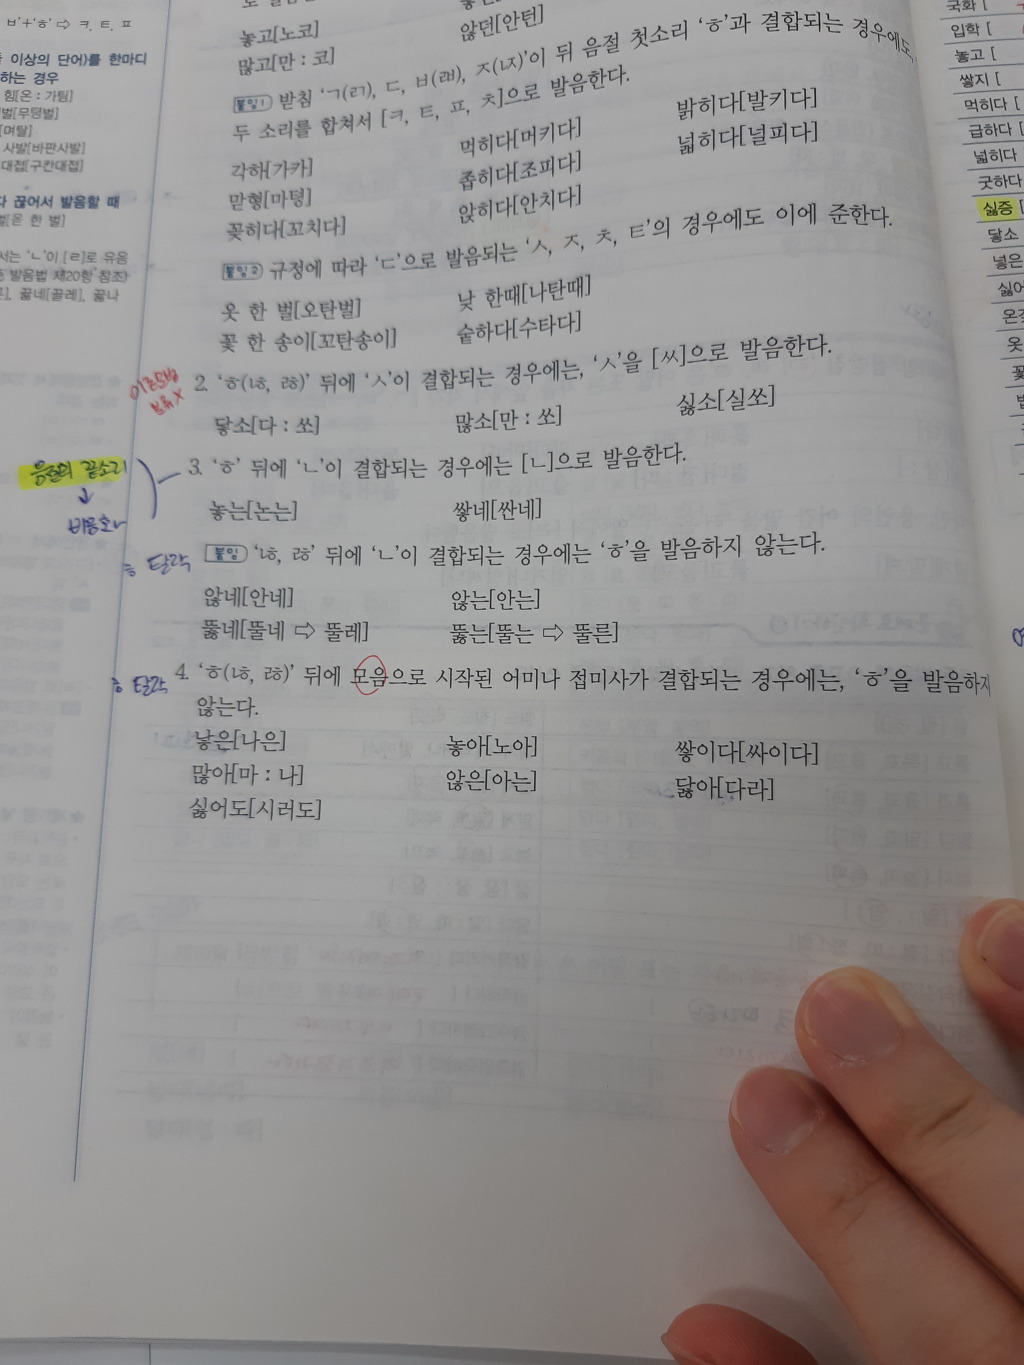 놓고[노코]
않던[안턴]
많고[만 : 코]
붙임1 받침 ‘ㄱ(ㄺ), ㄷ, ㅂ(ㄼ), ㅈ(ㄵ)’이 뒤 음절 첫소리 ‘ㅎ’과 결합되는 경우에도,
두 소리를 합쳐서 [ㅋ, ㅌ, ㅍ, ㅊ]으로 발음한다.
각하[가카] 먹히다[머키다] 밝히다[발키다]
맏형[마텽] 좁히다[조피다] 넓히다[널피다]
꽂히다[꼬치다] 앉히다[안치다]
붙임2 규정에 따라 ‘ㄷ’으로 발음되는 ‘ㅅ, ㅈ, ㅊ, ㅌ’의 경우에도 이에 준한다.
옷 한 벌[오탄벌] 낮 한때[나탄때]
꽃 한 송이[꼬탄송이] 숱하다[수타다]
2. ‘ㅎ(ㄶ, ㅀ)’ 뒤에 ‘ㅅ’이 결합되는 경우에는, ‘ㅅ’을 [ㅆ]으로 발음한다.
닿소[다 : 쏘] 많소[만 : 쏘] 싫소[실쏘]
3. ‘ㅎ’ 뒤에 ‘ㄴ’이 결합되는 경우에는 [ㄴ]으로 발음한다.
놓는[논는] 쌓네[싼네]
붙임 ‘ㄶ, ㅀ’ 뒤에 ‘ㄴ’이 결합되는 경우에는 ‘ㅎ’을 발음하지 않는다.
않네[안네] 않는[안는]
뚫네[뚤네 ⇨ 뚤레] 뚫는[뚤는 ⇨ 뚤른]
4. ‘ㅎ(ㄶ, ㅀ)’ 뒤에 모음으로 시작된 어미나 접미사가 결합되는 경우에는, ‘ㅎ’을 발음하지
않는다.
낳은[나은] 놓아[노아] 쌓이다[싸이다]
많아[마 : 나] 않은[아는] 닳아[다라]
싫어도[시러도]
ㅂ’+‘ㅎ’ ⇨ ㅋ, ㅌ, ㅍ
이상의 단어)를 한마디
하는 경우
힘[온 : 가팀]
벌[무텅벌]
[며탈]
사발[바판사발]
대접[구칸대접]
다 끊어서 발음할 때
벌[온 한 벌]
서는 ‘ㄴ’이 [ㄹ]로 유음
발음법 제20항 참조)
끓네[끌레], 끓나
음절의 끝소리
↓
비음화
ㅎ 탈락
ㅎ 탈락
국화 [
입학 [
놓고 [
쌓지 [
먹히다 [
급하다 [
넓히다
굿하다
싫증 [
닿소
넣은
싫어
옷